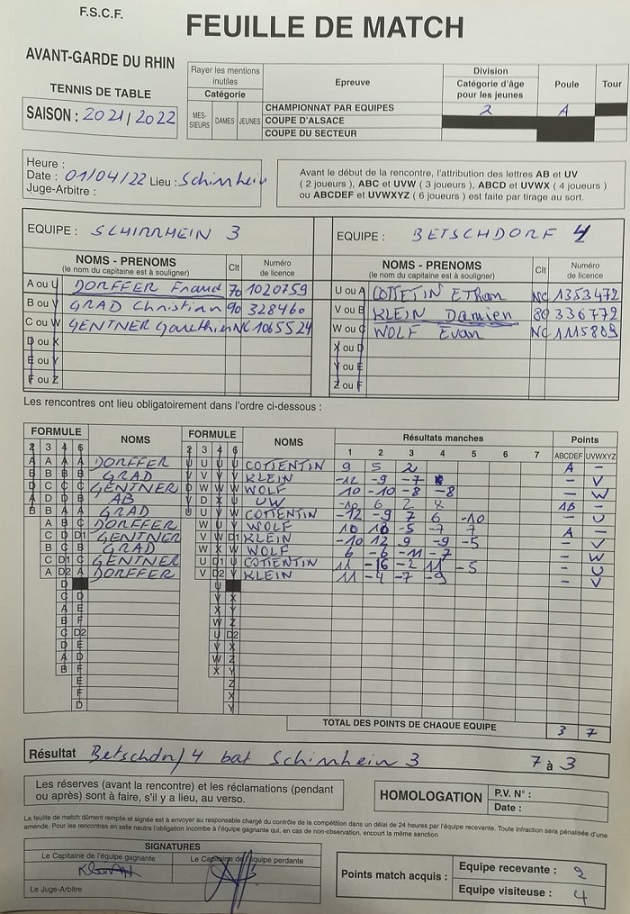 F.S.C.F.
FEUILLE DE MATCH
AVANT-GARDE DU RHIN
TENNIS DE TABLE
SAISON : 2021/2022
Rayer les mentions inutiles
Catégorie
MES-SIEURS DAMES JEUNES
Epreuve
Division
Catégorie d'âge pour les jeunes
Poule
Tour
CHAMPIONNAT PAR EQUIPES 2 A
COUPE D'ALSACE
COUPE DU SECTEUR
Heure :
Date : 01/04/22 Lieu : Schirrhein
Juge-Arbitre :
Avant le début de la rencontre, l'attribution des lettres AB et UV
( 2 joueurs ), ABC et UVW ( 3 joueurs ), ABCD et UVWX ( 4 joueurs )
ou ABCDEF et UVWXYZ ( 6 joueurs ) est faite par tirage au sort.
EQUIPE : SCHIRRHEIN 3
NOMS - PRENOMS
(le nom du capitaine est à souligner)
Clt
Numéro de licence
A ou U DORFFER 70 1020759
B ou V GRAD Christian 90 328460
C ou W GENTNER NC 1065524
D ou X
E ou Y
F ou Z
EQUIPE : BETSCHDORF 4
NOMS - PRENOMS
(le nom du capitaine est à souligner)
Clt
Numéro de licence
U ou A COTTETIN Ethan NC 1353472
V ou B KLEIN Damien 80 336772
W ou C WOLF Evan NC 1115809
X ou D
Y ou E
Z ou F
Les rencontres ont lieu obligatoirement dans l'ordre ci-dessous :
FORMULE NOMS FORMULE NOMS Résultats manches Points
2 3 4 6 2 3 4 6 1 2 3 4 5 6 7 ABCDEF UVWXYZ
DORFFER COTTENTIN 9 5 2 A -
GRAD KLEIN -12 -9 -7 - V
GENTNER WOLF 10 -10 -8 -8 - W
AB UW -10 6 2 8 AB -
GRAD COTTENTIN -12 -9 7 6 -10 - U
DORFFER WOLF 10 10 -5 -7 7 A -
GENTNER KLEIN -10 12 9 -9 -5 - V
GRAD WOLF 6 -6 -11 -7 - W
GENTNER COTTENTIN 11 -16 -2 11 -5 - U
DORFFER KLEIN 11 -4 -7 -9 - V
TOTAL DES POINTS DE CHAQUE EQUIPE 3 7
Résultat Betschdorf 4 bat Schirrhein 3 7 à 3
Les réserves (avant la rencontre) et les réclamations (pendant
ou après) sont à faire, s'il y a lieu, au verso.
HOMOLOGATION
P.V. N° :
Date :
La feuille de match dûment remplie et signée est à envoyer au responsable chargé du contrôle de la compétition dans un délai de 24 heures par l'équipe recevante. Toute infraction sera pénalisée d'une
amende. Pour les rencontres en salle neutre l'obligation incombe à l'équipe gagnante qui, en cas de non-observation, encourt la même sanction
SIGNATURES
Le Capitaine de l'équipe gagnante
Le Capitaine de l'équipe perdante
Le Juge-Arbitre
Points match acquis :
Equipe recevante : 2
Equipe visiteuse : 4